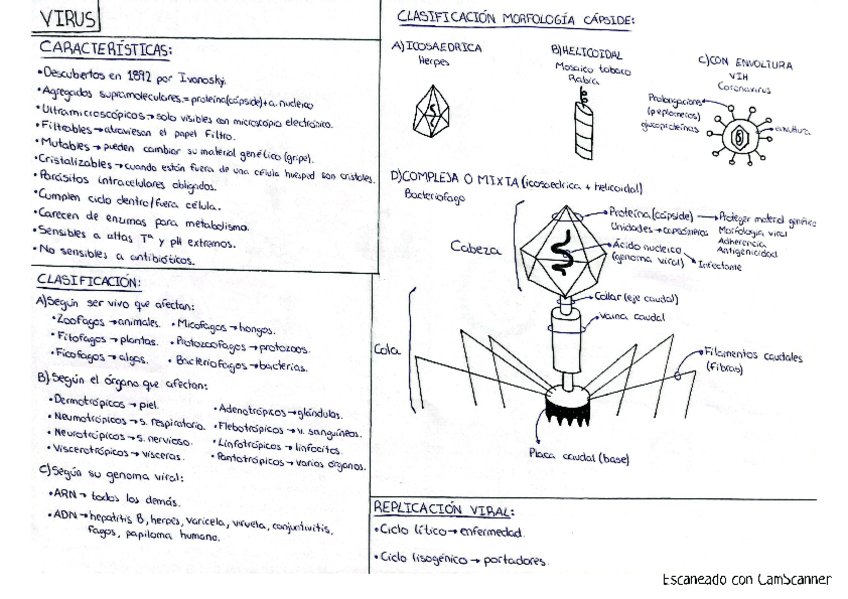 VIRUS
CARACTERÍSTICAS:
•Descubertos en 1892 por Ivanosky.
•Agregados supramoleculares = proteína(cápside)+a. nucleico
•Ultramicroscópicos → solo visibles con microscopio electrónico.
•Filtrables → atraviesan el papel filtro.
•Mutables → pueden cambiar su material genético (gripe).
•Cristalizables → cuando están fuera de una célula huesped son cristales.
•Parásitos intracelulares obligados.
•Cumplen ciclo dentro/fuera célula.
•Carecen de enzimas para metabolismo.
•Sensibles a altas Tª y pH extremos.
•No sensibles a antibióticos.
CLASIFICACIÓN:
A)Según ser vivo que afectan:
•Zoófagos → animales. •Micófagos → hongos.
•Fitófagos → plantas. •Protozoofagos → protozoos.
•Ficófagos → algas. •Bacteriófagos → bacterias.
B)Según el órgano que afectan:
•Dermotrópicos → piel. •Adenotrópicos → glándulas.
•Neumotrópicos → s. respiratorio. •Flebotrópicos → v. sanguíneos.
•Neurotrópicos → s. nervioso. •Linfotrópicos → linfocitos.
•Viscerotrópicos → vísceras. •Pantotrópicos → varios órganos.
C)Según su genoma viral:
•ARN → todos los demás.
•ADN → hepatitis B, herpes, varicela, viruela, conjuntivitis,
fagos, papiloma humano.
CLASIFICACIÓN MORFOLOGÍA CÁPSIDE:
A)ICOSAEDRICA
Herpes
B)HELICOIDAL
Mosaico tabaco
Rabia
C)CON ENVOLTURA
VIH
Coronavirus
Prolongaciones
(peplomeros)
glucoproteínas
envoltura
D)COMPLEJA O MIXTA (icosaedrica + helicoidal)
Bacteriófago
Cabeza
Proteína (cápside) → Proteger material genético
Unidades → capsómeros Morfología viral
Adherencia
Antigenicidad
Ácido nucleico
(genoma viral) Infectante
Collar (eje caudal)
Vaina caudal
Cola
Filamentos caudales
(fibras)
Placa caudal (base)
REPLICACIÓN VIRAL:
•Ciclo lítico → enfermedad.
•Ciclo lisogénico → portadores.
Escaneado con CamScanner